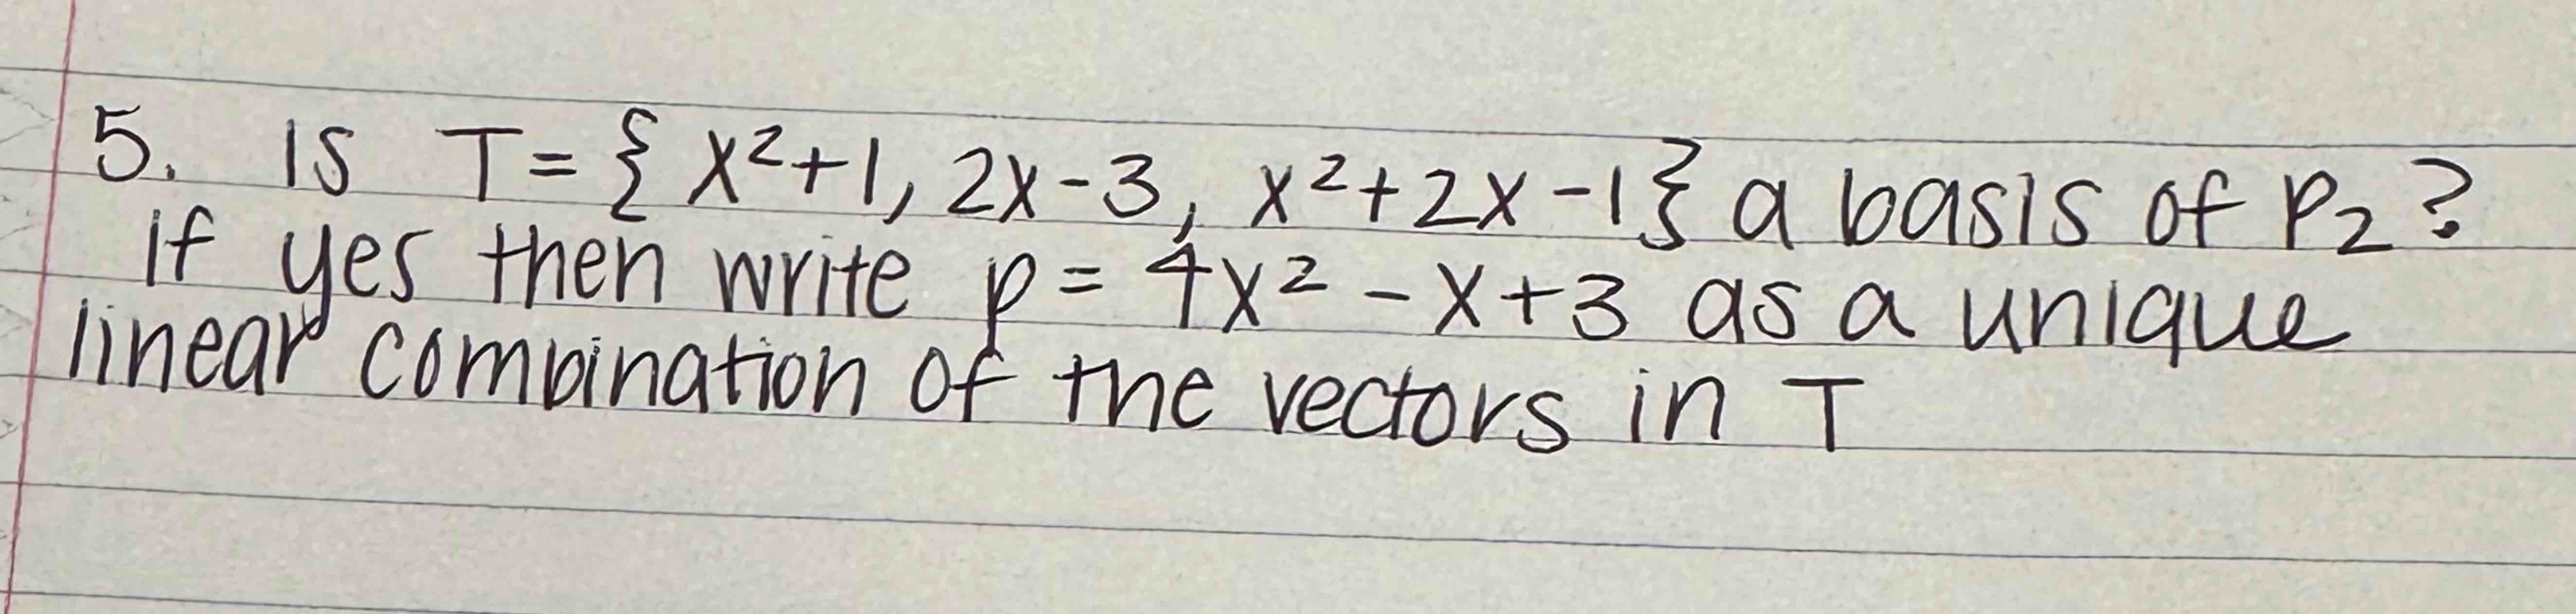 5. Is T = { x² + 1, 2x - 3, x² + 2x - 1 } a basis of P₂?
If yes then write p = 4x² - x + 3 as a unique
linear combination of the vectors in T